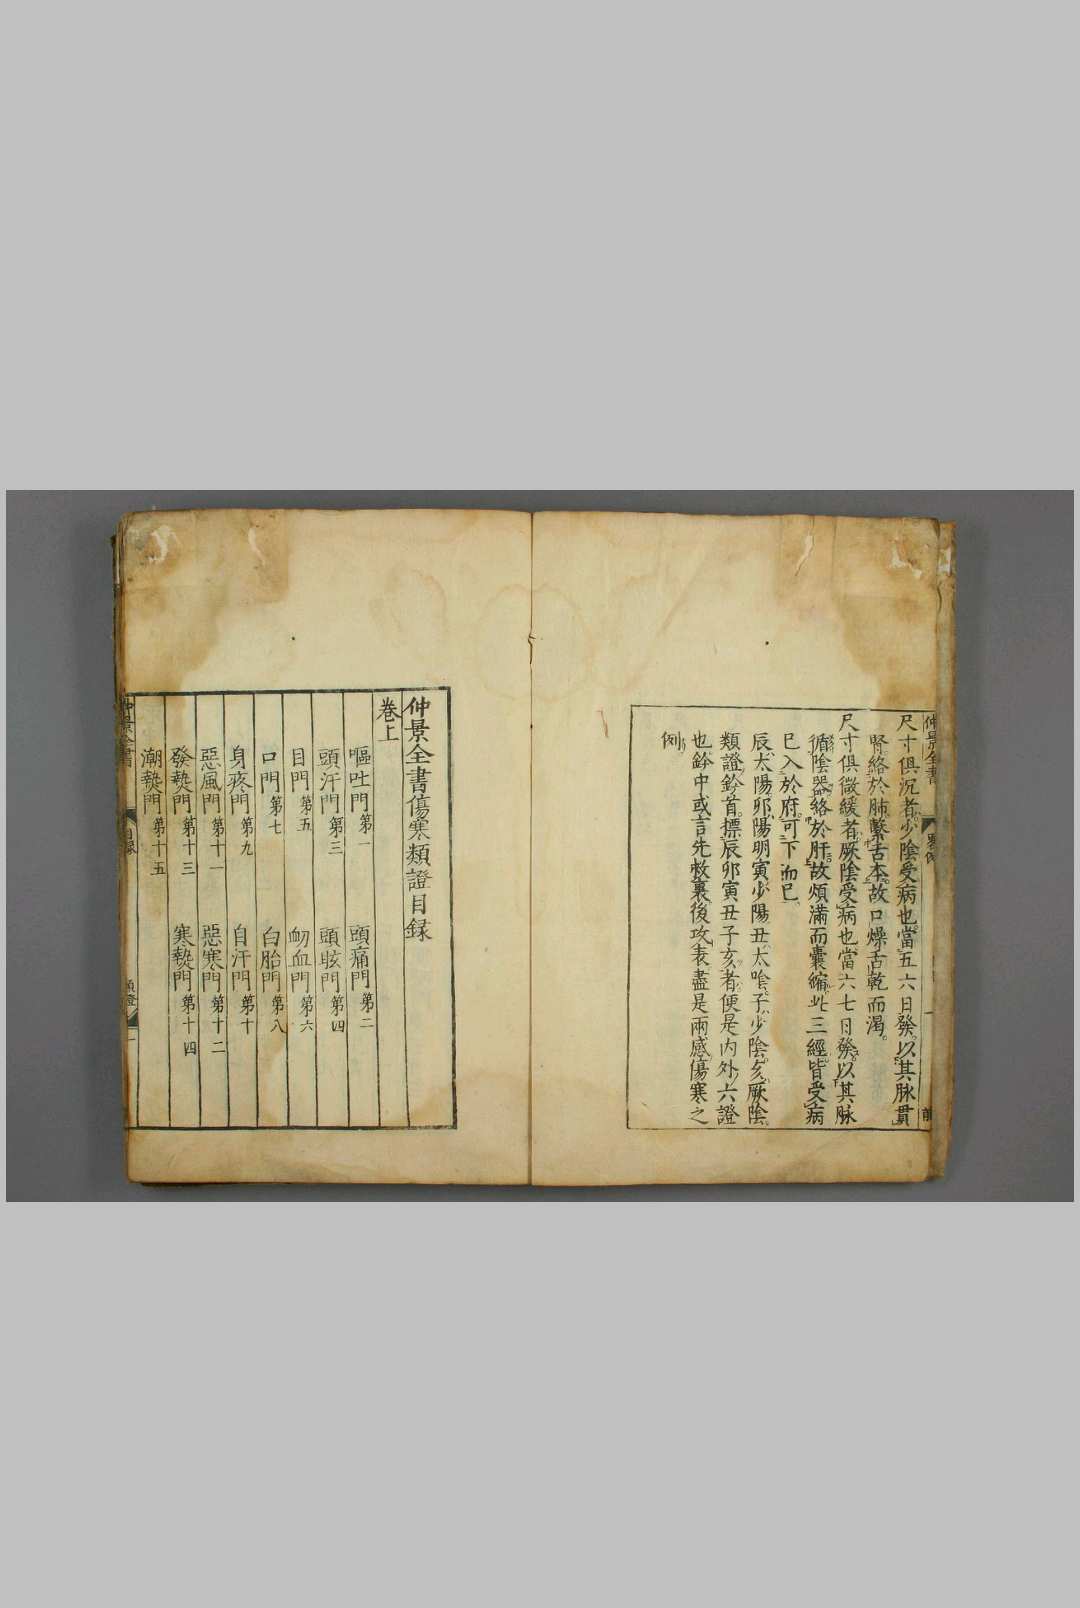 仲景全書
尺寸俱沉者少陰受病也當五六日發以其脉貫
腎絡於肺繫舌本故口燥舌乾而渴
尺寸俱微緩者厥陰受病也當六七日發以其脉
循陰器絡於肝故煩滿而囊縮此三經皆受病
巳入於府可下而巳
辰太陽卯陽明寅少陽丑太陰子少陰亥厥陰
類證鈐首摽辰卯寅丑子亥者便是内外六證
也鈐中或言先救裏後攻表盡是兩感傷寒之
例
仲景全書傷寒類證目録
卷上
嘔吐門第一 頭痛門第二
頭汗門第三 頭眩門第四
目門第五 衂血門第六
口門第七 白胎門第八
身疼門第九 自汗門第十
惡風門第十一 惡寒門第十二
發𤍠門第十三 寒𤍠門第十四
潮𤍠門第十五
仲景全書 目録 類證 一